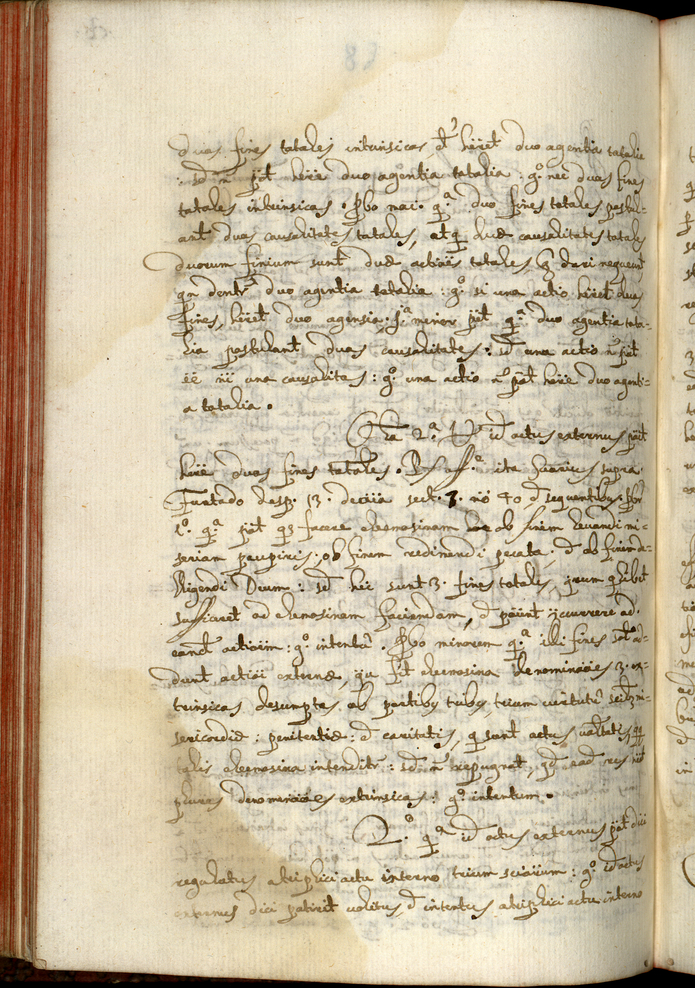 duas fines totales intrinsicos etȋ heret duo agentia totalia
: sed n̄ pōt here duo agentia totalia : gº. nec duas fines
totales intrinsicos. Pbo mai. qª. duo fines totales postul-
ant duas causalitates totales, atq hud causalitates totales
duorum finium sunt duæ actiões totales, q dari nequeunt
qn dentr duo agentia totalia : gº. si una actio heret duos
fines, heret duo agensia. sª minor pōt qª. duo agentia tota-
lia postulant duas causalitates : sed una actio n̄ pōt
eē nī una causalitas : gº. una actio nº pōt here duo agenti-
a totalia.
2ª. id actus externus pōt
here duos fines totales. Rs affª. ita Suarius supra.
Furtado desp. 13. deciia sect. 3. nō 40, et sequentibus. pbr
1º. qª pōt qs facere elemosinam ob finem levandi mi-
seriam pauperis, ob finem redimendi pecata, et ob finem de-
ligendi Deum : sed hic sunt 3. fines totales, qrum quilibet
sufficiret ad elemosinam faciendam, et pōunt concurrere ad
eand actioīm : gº. intentū. Pbo minorem qª. illi fines sol ad-
dunt actiōi externæ, qu sit elemosina denominãões 3. ex-
trinsicas desumptas ab partibus tribus trium virtutū scilz mi-
sericordiæ : penitentiæ : et caritatis, q sunt actus
talis elemosina intenditr : sed n̄ repugnat, qd eadē res
plures denominãões extrinsicas : gº. intentum.
2º. qª. id actus externus pōt dici
regulatus a triplici actu interno trium : gº. id actus
externus dici poterit volitus, et intentus a triplici actu interno